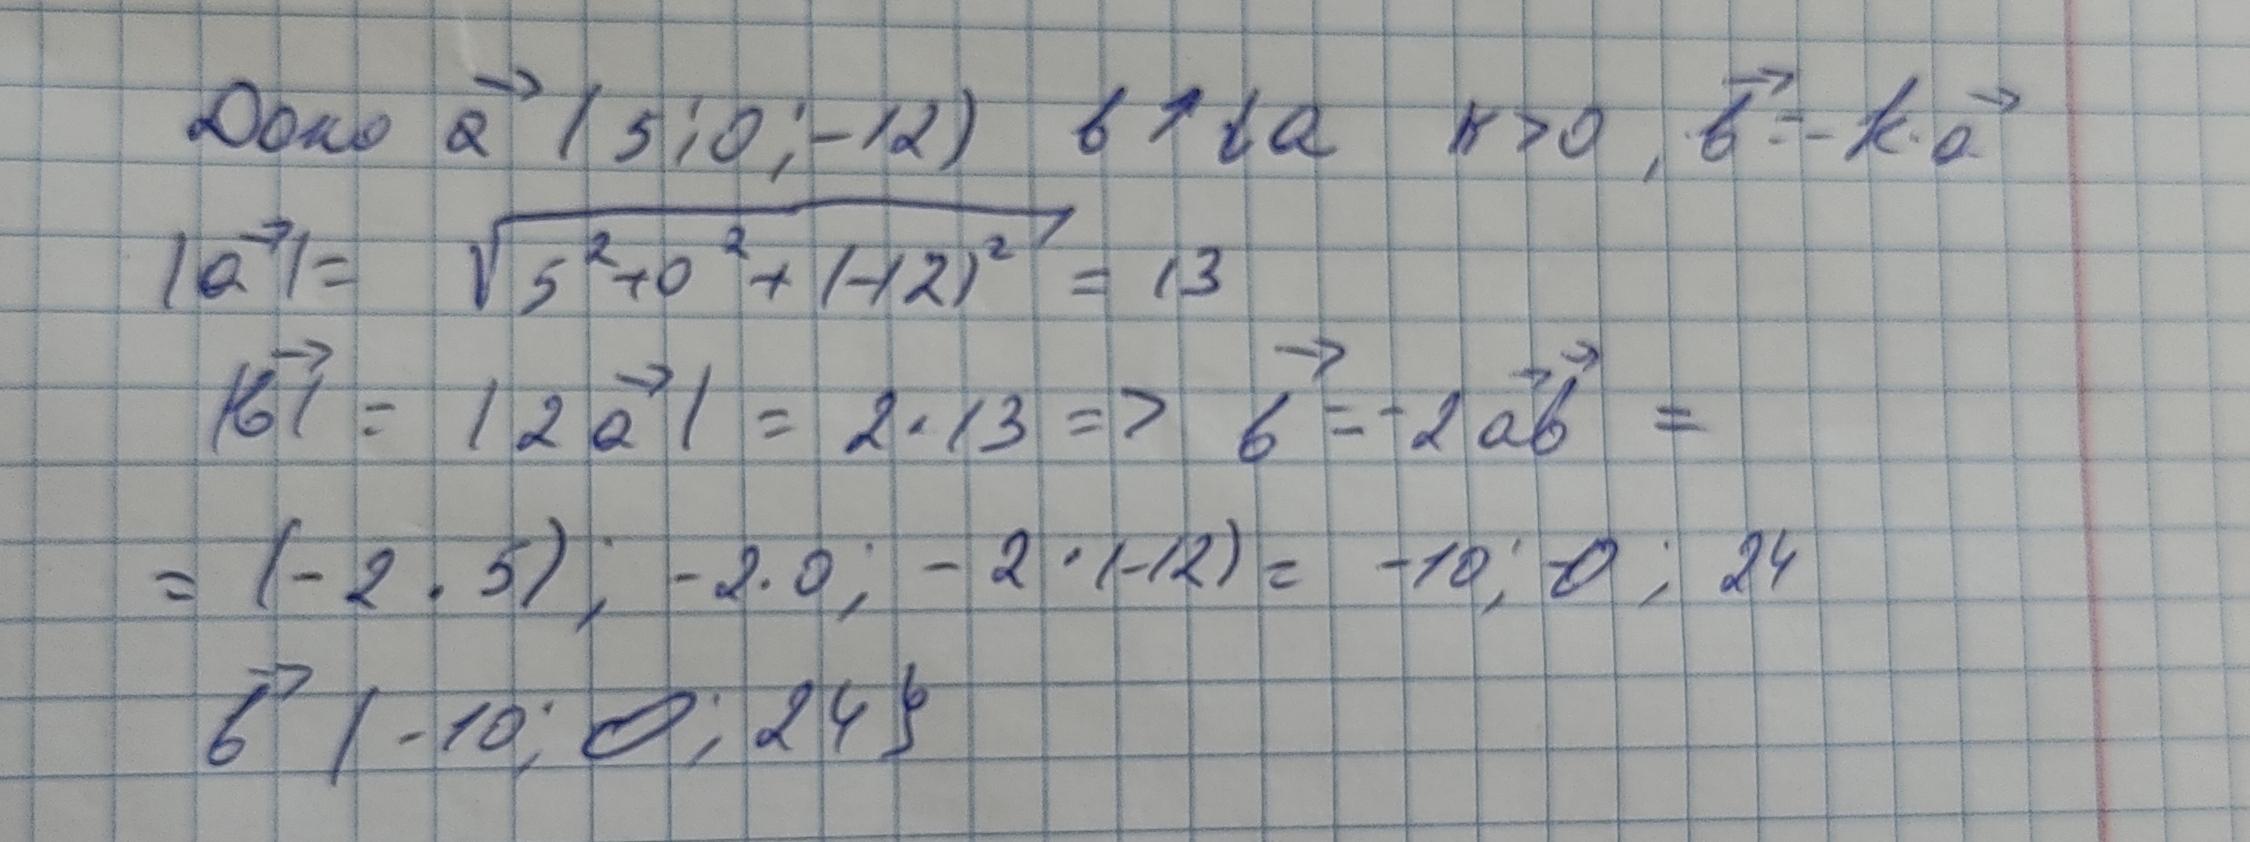 Дано a⃗ (5;0;-12) b↑↓a k>0, b⃗=-k·a⃗
|a⃗|= √5²+0²+(-12)² = 13
|b⃗| = |2a⃗| = 2·13 => b⃗=-2a⃗b⃗ =
= (-2·5); -2·0; -2·(-12)= -10; 0; 24
b⃗ (-10; 0; 24}